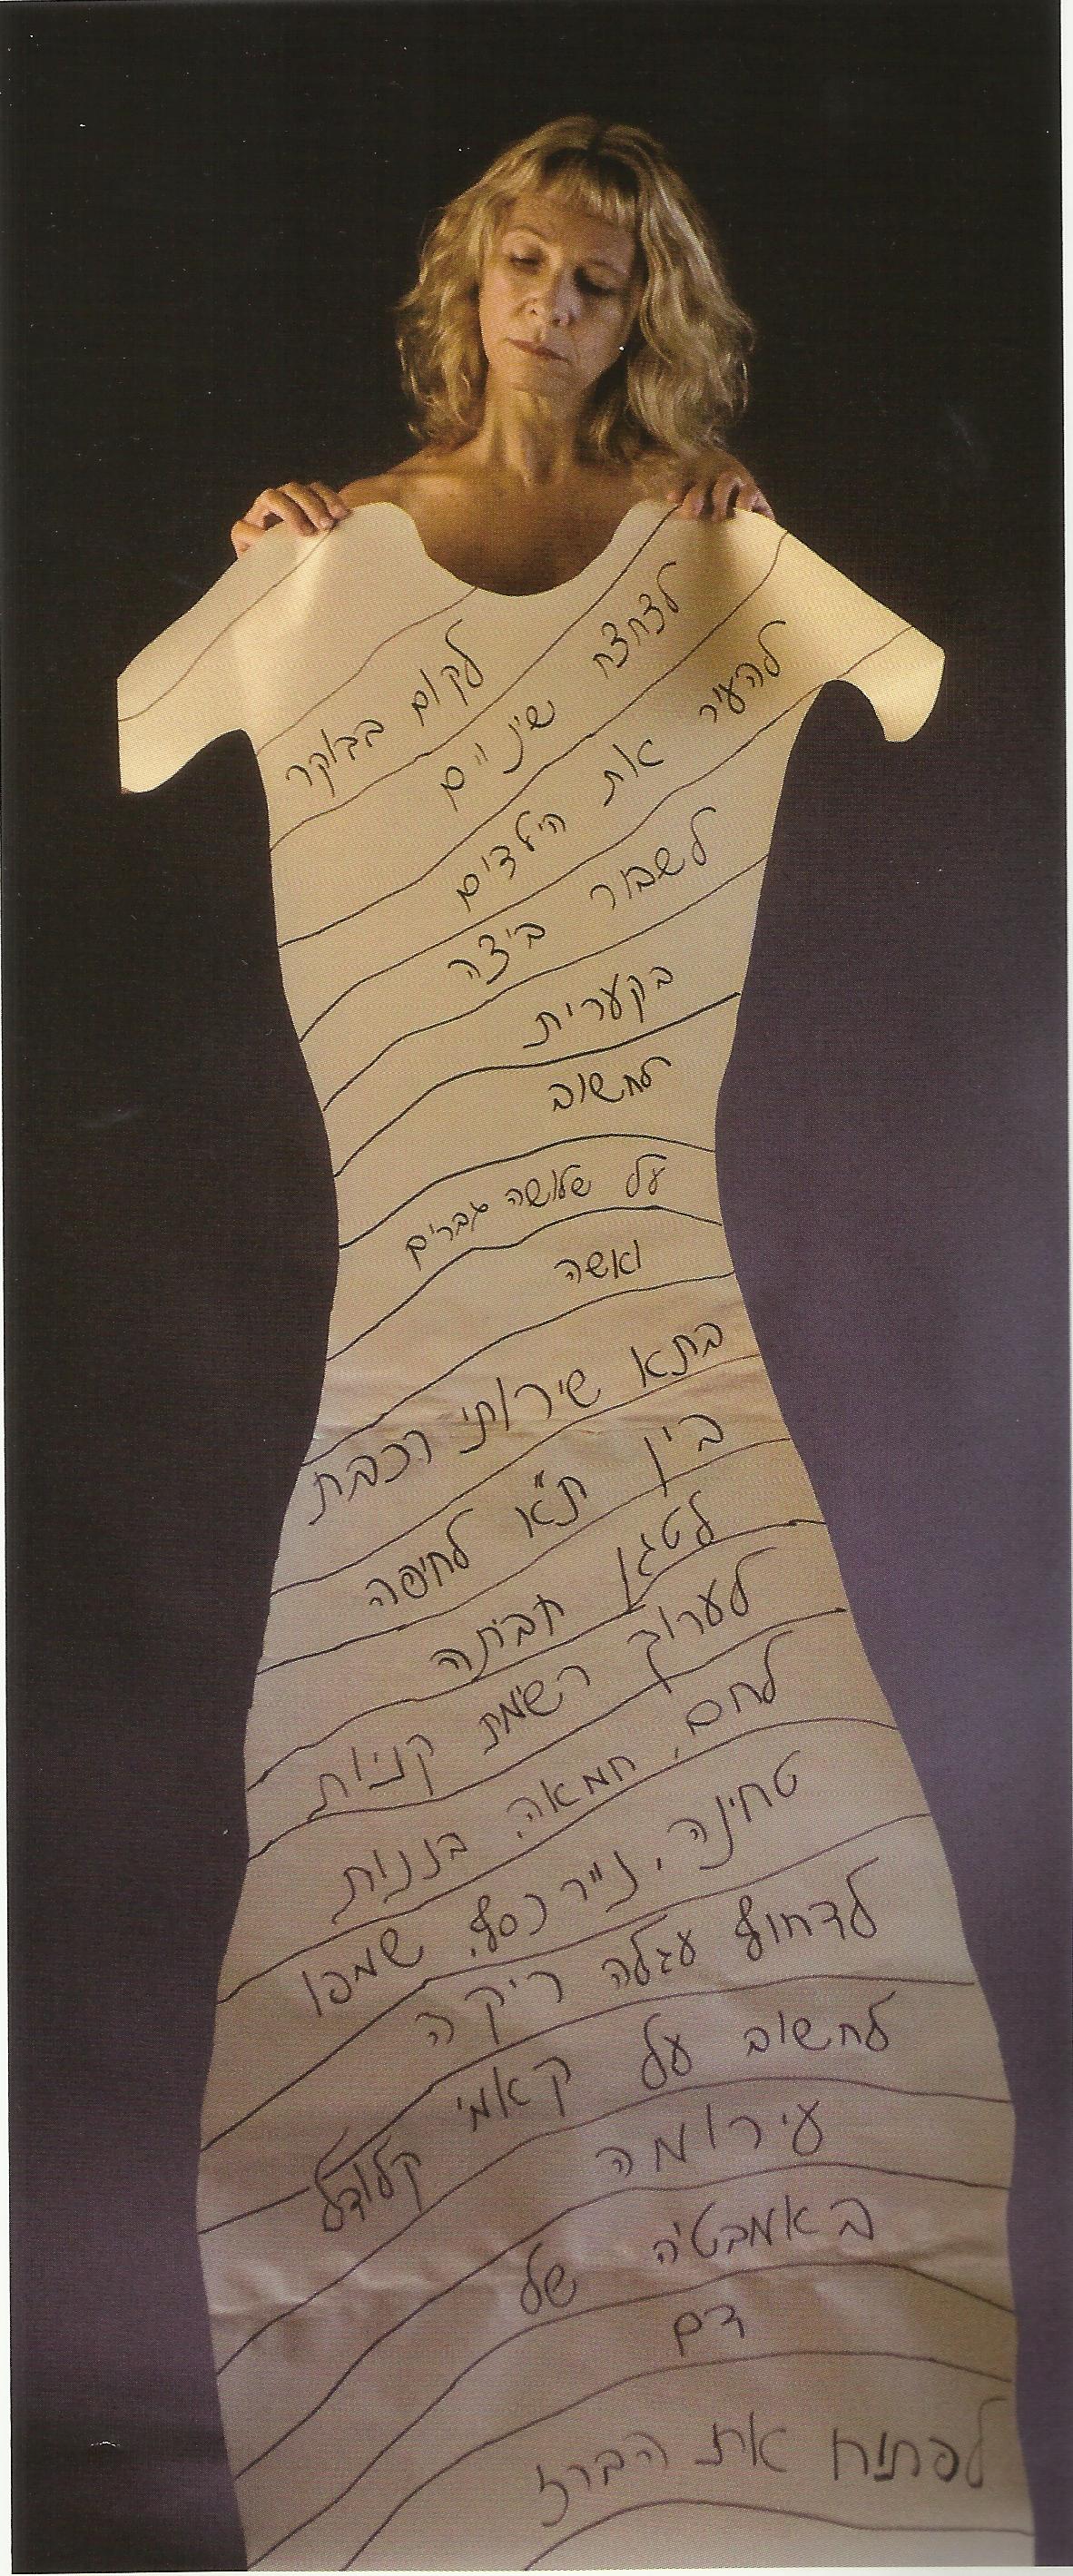 לקום בבוקר
לצחצח שיניים
להעיר את הילדים
לשבור ביצה
בקערית
לחשוב
על שלושה גברים
ואשה
בתא שירותי רכבת
בין ת"א לחיפה
לטגן חביתה
לערוך רשימת קניות
לחם, חמאה, בננות
טחינה, נייר כסף, שמפו
לדחוף עגלה ריקה
לחשוב על קאמי קלודל
עירומה
באמבטיה של
דם
לפתוח את הברז